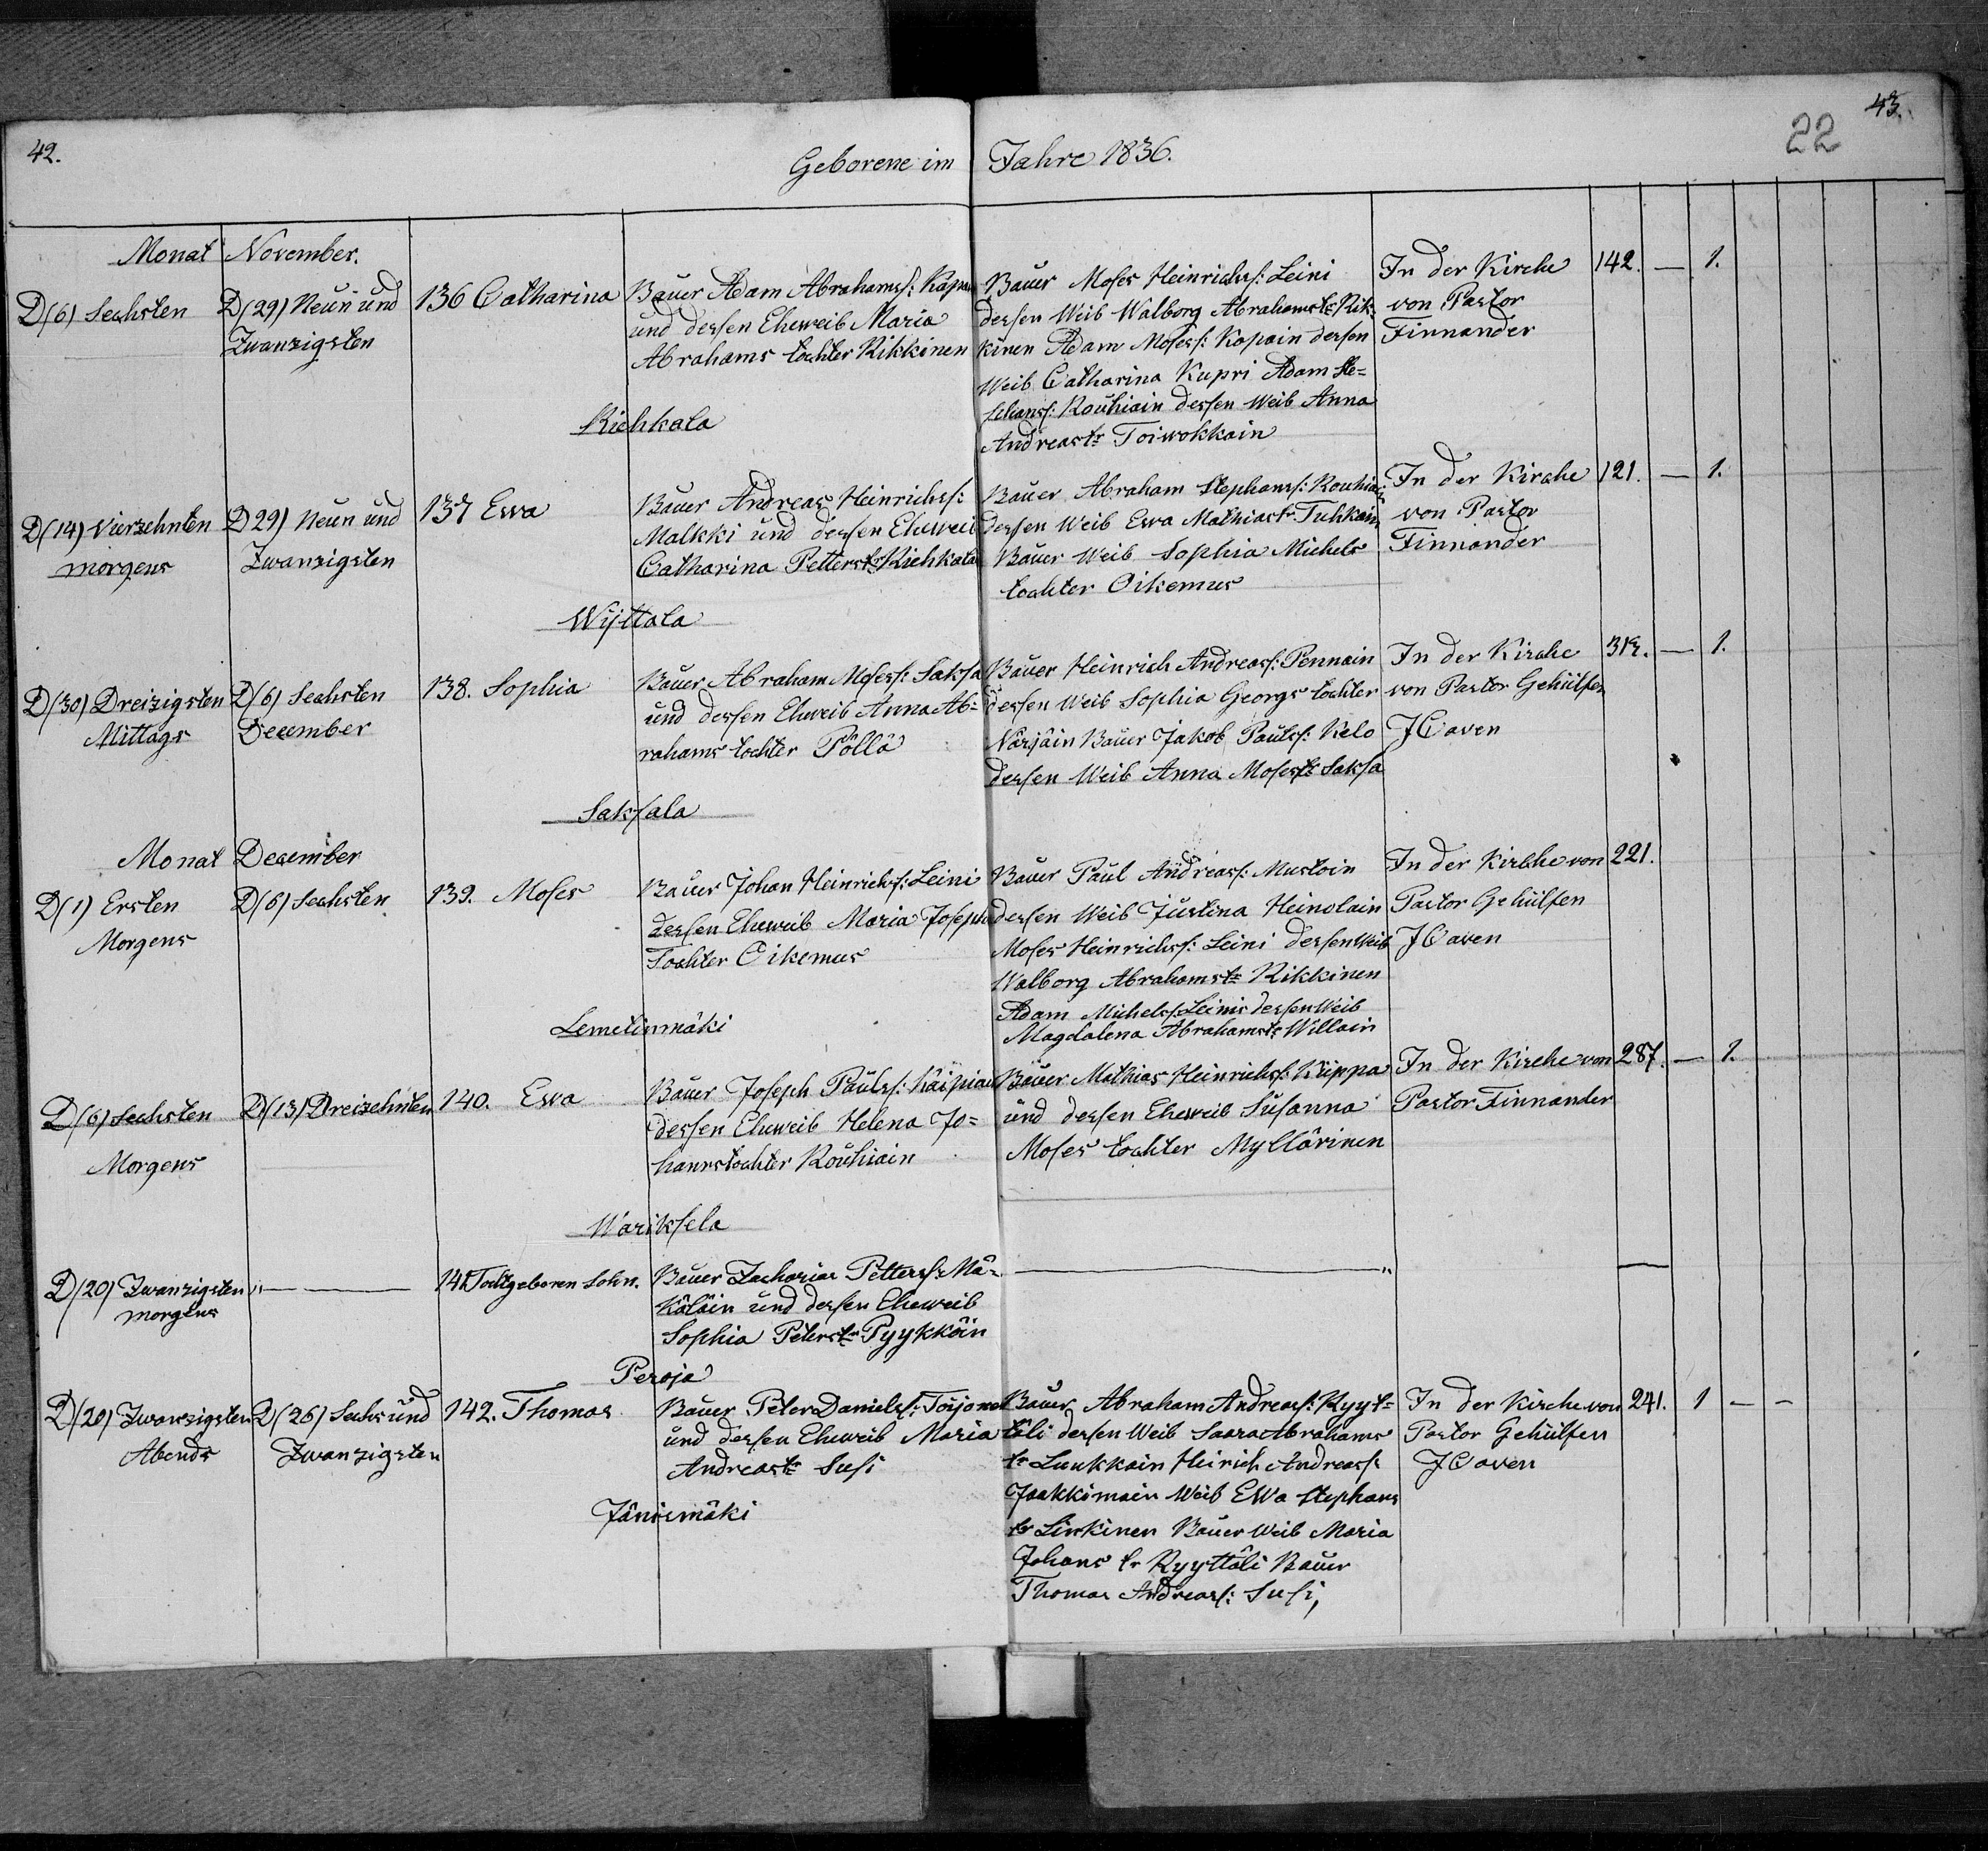 42.
43.
22
Geborene im Jahre 1836.
Monat November.
D(6) Sechsten
D(29) Neün und
Zwanzigsten
136 Catharina
Baüer Adam Abrahamsſ: Kapa
und deſsen Eheweib Maria
Abrahams tochter Rikkinen
Baüer Moſes Heinrichsſ: Leini
deſsen Weib Walborg Abrahamstr Rik-
kinen Adam Moſesſ: Kapain deſsen
Weib Catharina Kupri Adam Ste=
phansſ: Roühiain deſsen Weib Anna
Andreastr Toiwokkain
In der Kirche
von Pastor
Finnander
142. — 1.
Riehkala
D(14) Vierzehnten
morgens
D 29) Neün und
Zwanzigsten
137 Ewa
Baüer Andreas Heinrichsſ:
Malkki und deſsen Eheweib
Catharina Petterstr Riehkala
Baüer Abraham Stephansſ: Rouhiain
deſsen Weib Ewa Mathiastr Tuhkain
Baüer Weib Sophia Michels
tochter Oikemus
In der Kirche
von Pastor
Finnander
121. — 1.
Wijttala
D(30) Dreizigsten
Mittags
D(6) Sechsten
December
138. Sophia
Baüer Abraham Moſesſ: Sakſa
und deſsen Eheweib Anna Ab=
rahams tochter Pöllä
Baüer Heinrich Andreasſ: Pennain
deſsen Weib Sophia Georgs tochter
Närjäin Baüer Jakob Paulsſ: Kelo
deſsen Weib Anna Moſestr Sakſa
In der Kirche
von Pastor Gehülfen
J Caven
— 1.
Sakſala
Monat December
D(1) Ersten
Morgens
D(6) Sechsten
139. Moſes
Baüer Johan Heinrichsſ: Leini
deſsen Eheweib Maria Joſephs
Tochter Oikemus
Baüer Paul Andreasſ: Mustoin
deſsen Weib Jüstina Heinolain
Moſes Heinrichsſ: Leini deſsen Weib
Walborg Abrahamstr Rikkinen
Adam Michelsſ: Leinis deſsen Weib
Magdalena Abrahamstr Willain
In der Kirche von
Pastor Gehülfen
J Caven
221.
Lemetinmäki
D(6) Sechsten
Morgens
D(13) Dreizehnten
140. Ewa
Baüer Joſeph Paulsſ: Käipiain
deſsen Eheweib Helena Jo=
hanns tochter Roühiain
Baüer Mathias Heinrichsſ: Küppa
und deſsen Eheweib Süsanna
Moſes tochter Myllärinen
In der Kirche von
Pastor Finnander
287. — 1.
Warikſela
D(20) Zwanzigsten
morgens
141. Todtgeboren Sohn.
Baüer Zacharias Pettersſ: Mä=
käläin und deſsen Eheweib
Sophia Peterstr Pyykköin
Peroja
D(20) Zwanzigsten
Abends
D(26) Sechs und
Zwanzigsten
142. Thomas
Baüer Peter Danielsſ: Toijonen
und deſsen Eheweib Maria
Andreastr Suſi
Baüer Abraham Andreasſ: Kyyt=
täli deſsen Weib Saara Abrahams
tr Luukkain Heirich Andreasſ:
Jaakkimain Weib EWa Stephans
tr Linkinen Baüer Weib Maria
Johans tr Kyyttäli Baüer
Thomas Andreasſ: Suſi,
In der Kirche von
Pastor Gehülfen
J Caven
241. 1 — –
Jänisimäki